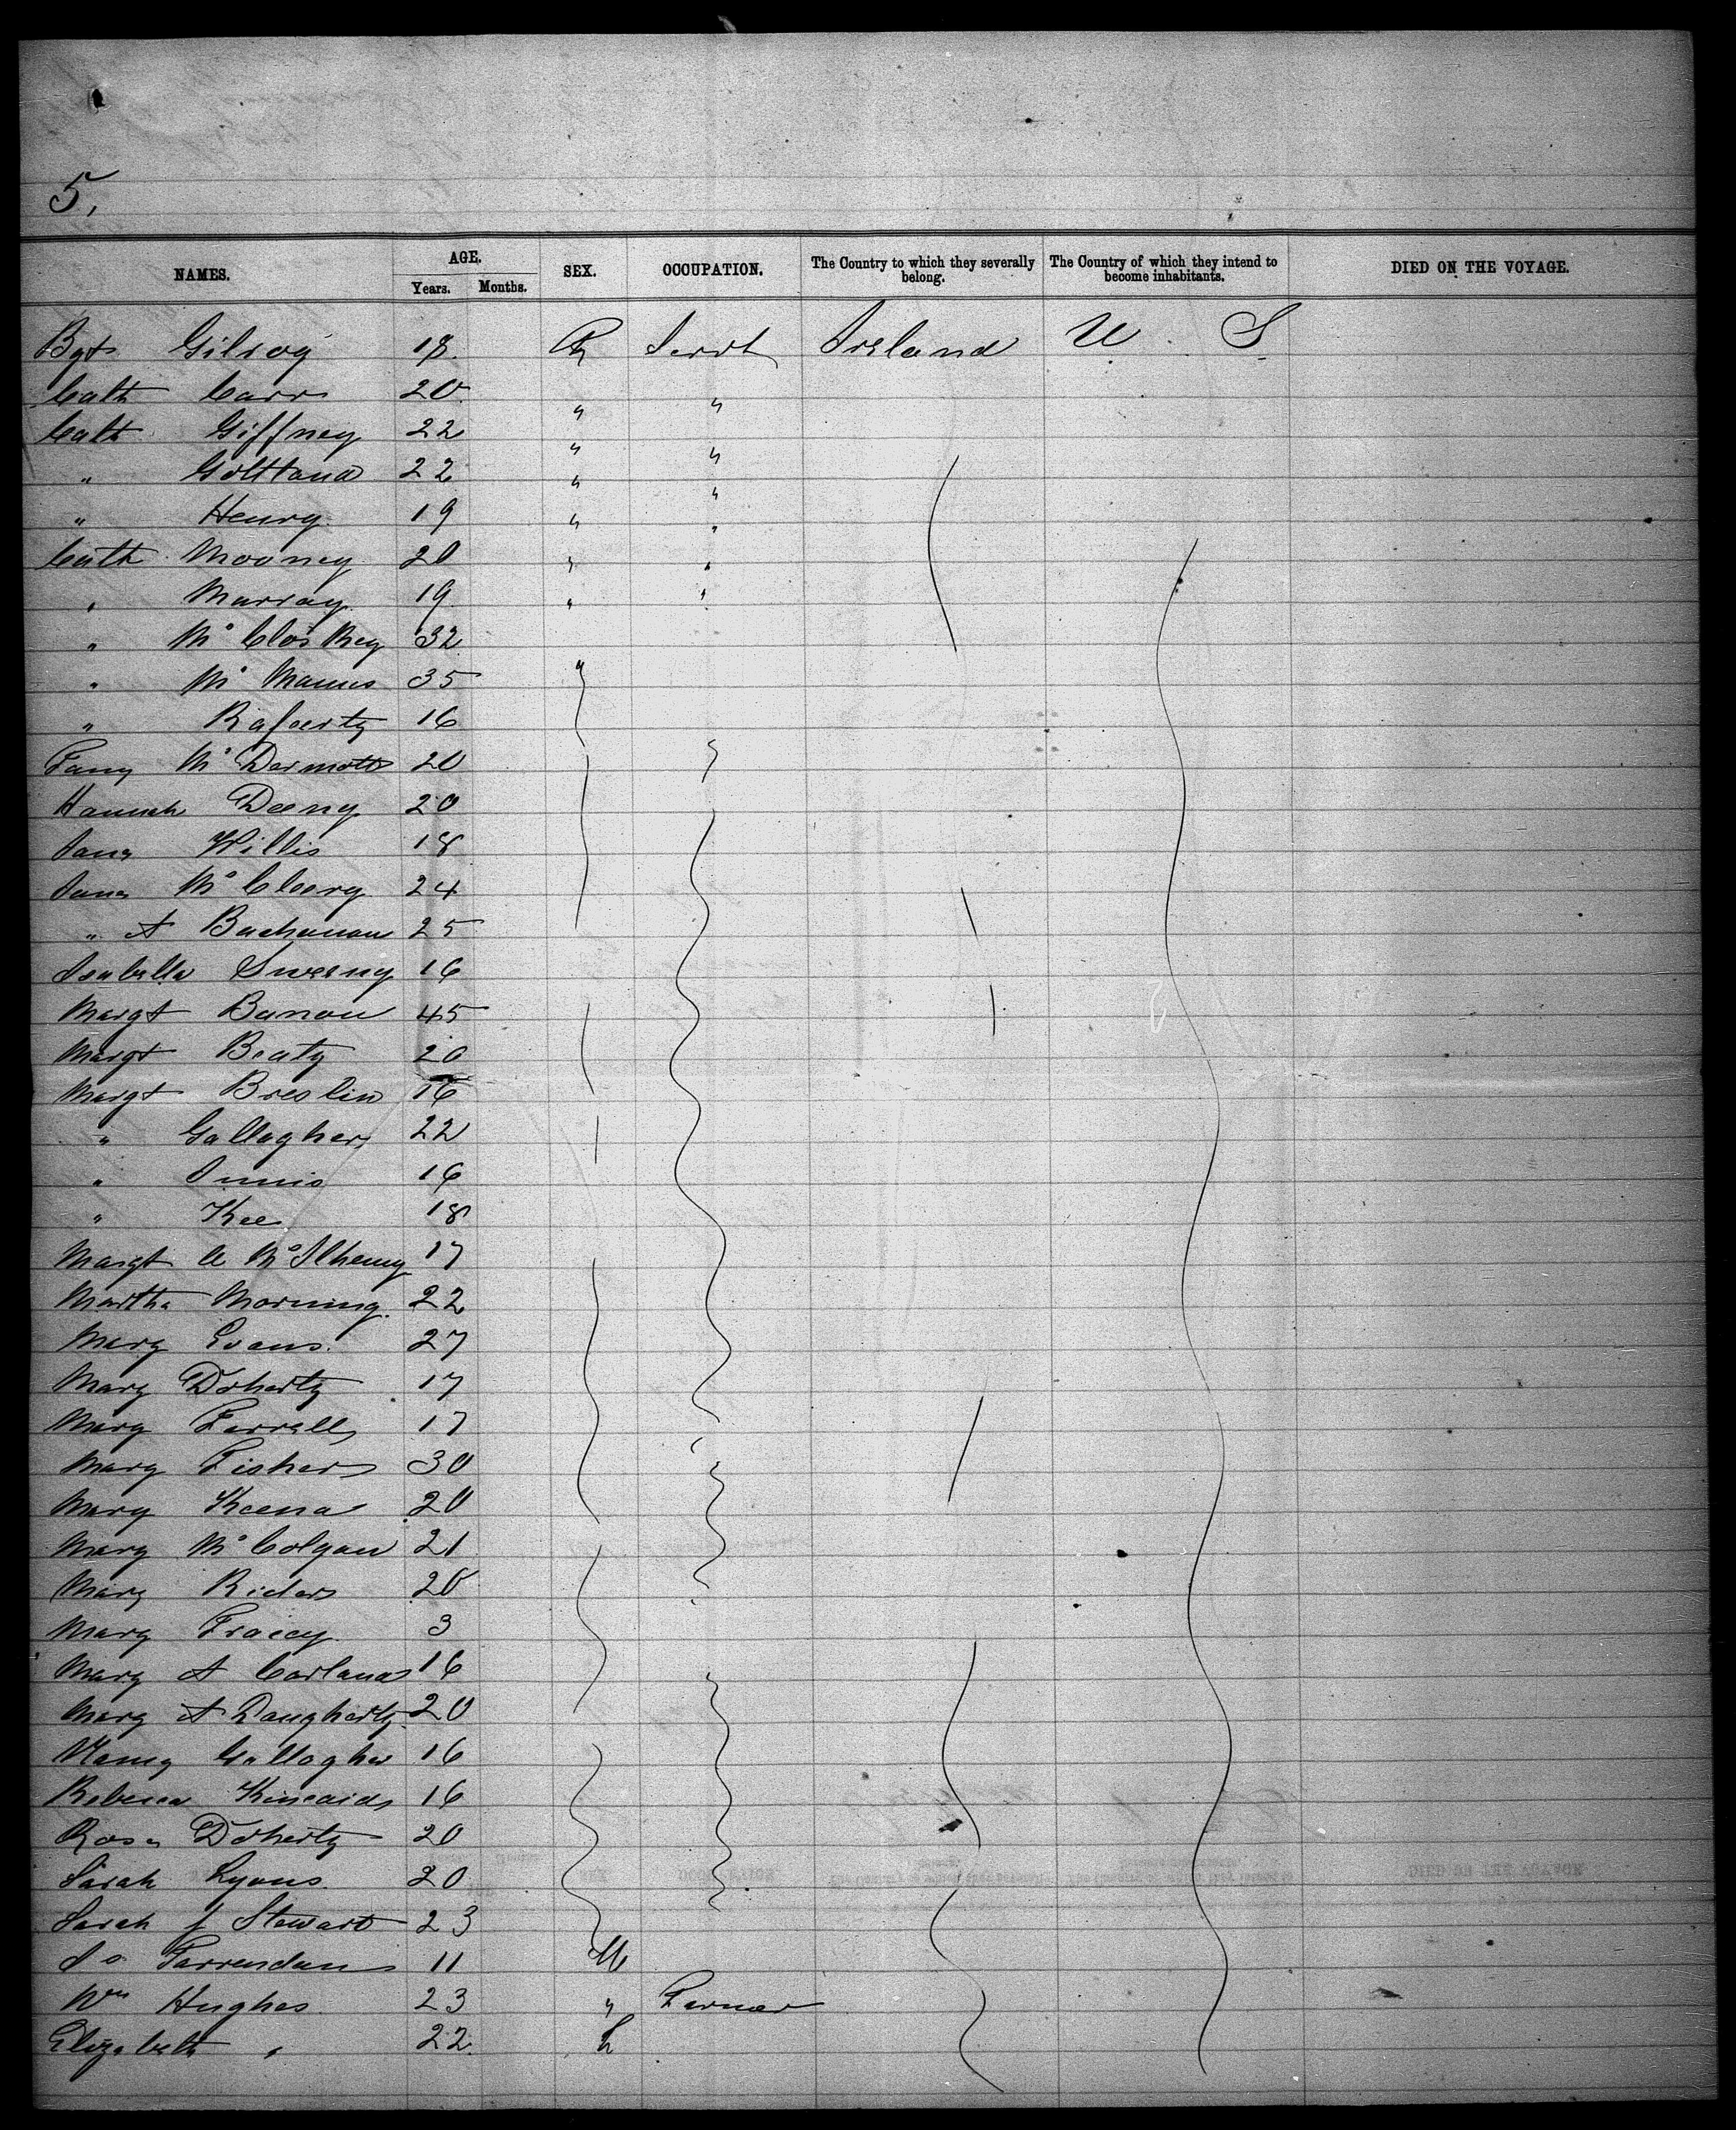 5.
NAMES. AGE. Years. Months. SEX. OCCUPATION. The Country to which they severally belong. The Country of which they intend to become inhabitants. DIED ON THE VOYAGE.
Bgt Gilroy 18 Servt Ireland U. S
Cath Carr 20 " "
Cath Giffney 22 " "
" Goltland 22 " "
" Henry 19 " "
Cath Mooney 20 " "
" Murray 19 " "
" McCloskey 32
" McManus 35 "
" Rafearty 16
Fany McDermott 20
Hannah Deeny 20
Jane Willis 18
Jane McCleery 24
" A Buchanan 25
Isabella Sweeny 16
Margt Banon 45
Margt Beaty 20
Margt Breslin 16
" Gallagher 22
" Innis 16
" Kee 18
Margt McIlhenny 17
Martha Morning 22
Mary Evans 27
Mary Doherty 17
Mary Farrell 17
Mary Fisher 30
Mary Keena 20
Mary McColgan 21
Mary Rider 20
Mary Tracey 3
Mary A Carland 16
Mary A Daugherty 20
Nancy Gallagher 16
Rebecca Kincaid 16
Rose Doherty 20
Sarah Lyons 20
Sarah J Stewart 23
Farrendan 11 M
Wm Hughes 23 " Farmer
Elizabeth " 22